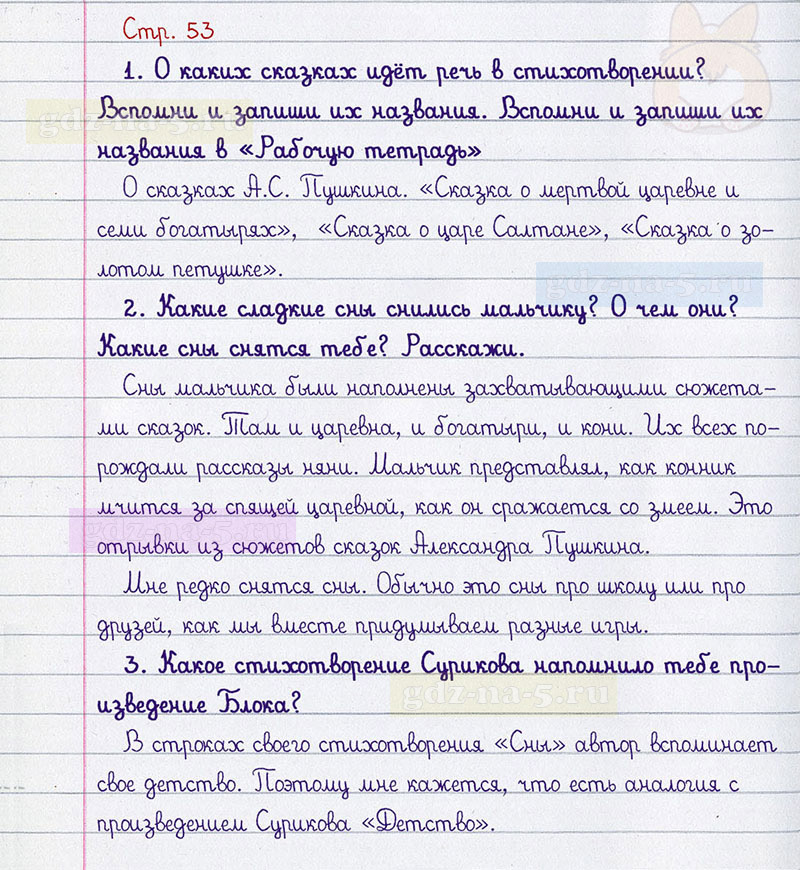 Стр. 53
1. О каких сказках идёт речь в стихотворении?
Вспомни и запиши их названия. Вспомни и запиши их
названия в «Рабочую тетрадь»
О сказках А.С. Пушкина. «Сказка о мертвой царевне и
семи богатырях», «Сказка о царе Салтане», «Сказка о зо-
лотом петушке».
2. Какие сладкие сны снились мальчику? О чем они?
Какие сны снятся тебе? Расскажи.
Сны мальчика были наполнены захватывающими сюжета-
ми сказок. Там и царевна, и богатыри, и кони. Их всех по-
рождали рассказы няни. Мальчик представлял, как конник
мчится за спящей царевной, как он сражается со змеем. Это
отрывки из сюжетов сказок Александра Пушкина.
Мне редко снятся сны. Обычно это сны про школу или про
друзей, как мы вместе придумываем разные игры.
3. Какое стихотворение Сурикова напомнило тебе про-
изведение Блока?
В строках своего стихотворения «Сны» автор вспоминает
свое детство. Поэтому мне кажется, что есть аналогия с
произведением Сурикова «Детство».
gdz-na-5.ru
gdz-na-5.ru
gdz-na-5.ru
gdz-na-5.ru